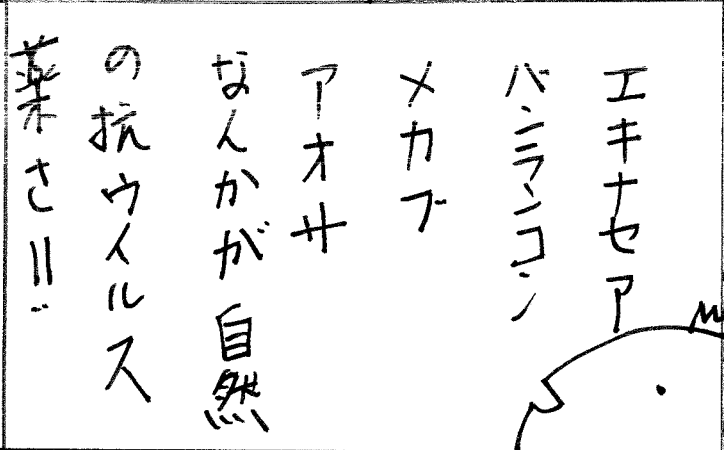 エキナセア
バンランコン
メカブ
アオサ
なんかが自然
の抗ウイルス
薬さ!!